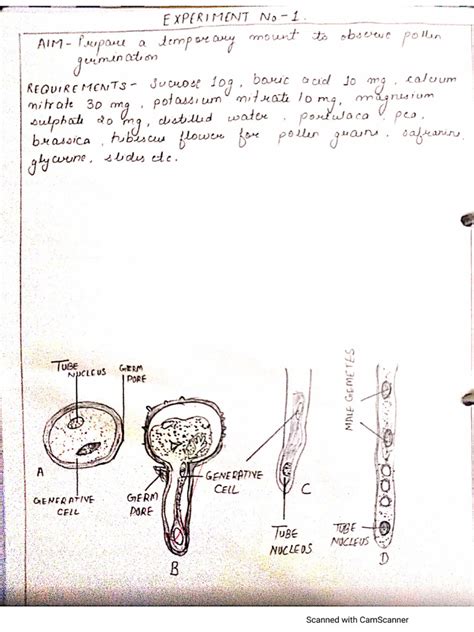 EXPERIMENT No-1.
AIM- Prepare a temporary mount to observe pollen
germination
REQUIREMENTS- Sucrose 10g, boric acid 10 mg, calcium
nitrate 30 mg, potassium nitrate 10 mg, magnesium
sulphate 20 mg, distilled water, portulaca, pea,
brassica, hibiscus flower for pollen grains, safranine,
glycerine, slides etc.
TUBE
NUCLEUS
GERM
PORE
A
GENERATIVE
CELL
GERM
PORE
B
GENERATIVE
CELL
C
TUBE
NUCLEUS
MALE GEMETES
TUBE
NUCLEUS
D
Scanned with CamScanner